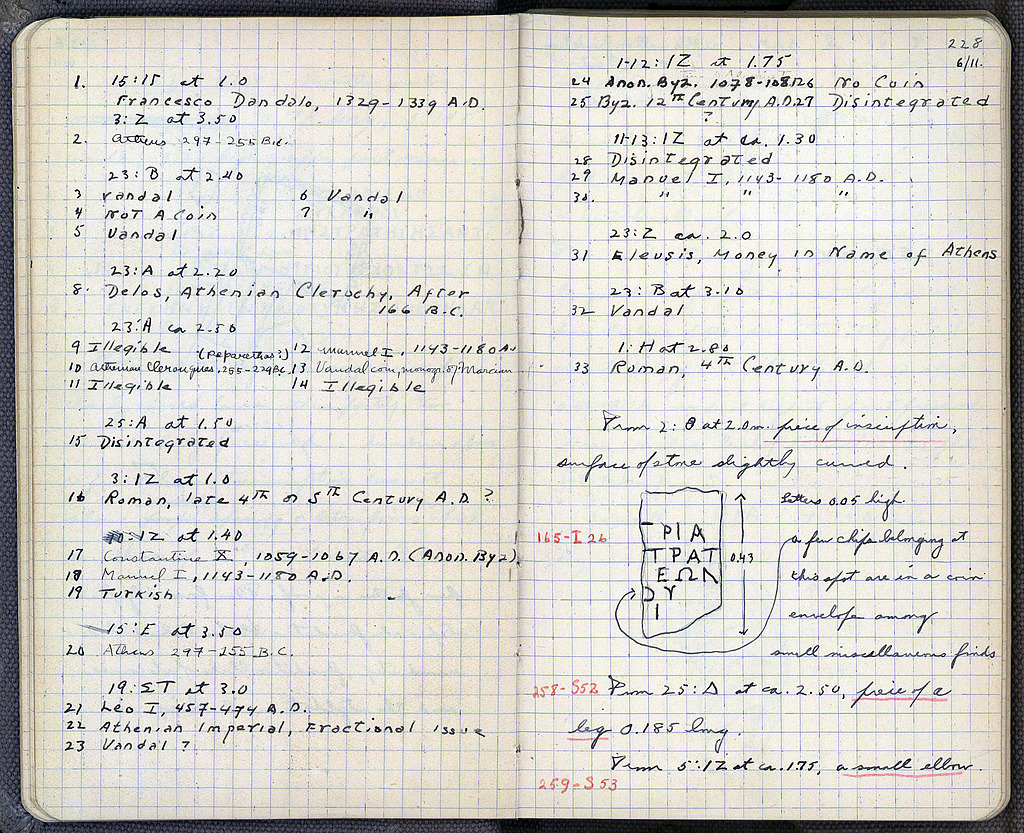 1. 15:15 at 1.0
Francesco Dandalo, 1329-1339 A.D.
3:Z at 3.50
2. Athens 297-255 B.C.
23:B at 2.40
3 Vandal 6 Vandal
4 Not A Coin 7 "
5 Vandal
23:A at 2.20
8. Delos, Athenian Cleruchy, After
166 B.C.
23:A ca 2.50
9 Illegible (Peparethos?) 12 Manuel I, 1143-1180 A.D.
10 Athenian Clerouquies, 255-229 B.C. 13 Vandal coin, monogr. of Marcian
11 Illegible 14 Illegible
25:A at 1.50
15 Disintegrated
3:IZ at 1.0
16 Roman, late 4TH or 5TH Century A.D.?
:IZ at 1.40
17 Constantine X, 1059-1067 A.D. (Anon. Byz)
18 Manuel I, 1143-1180 A.D.
19 Turkish
15:E at 3.50
20 Athens 297-255 B.C.
19:ΣT at 3.0
21 Leo I, 457-474 A.D.
22 Athenian Imperial, Fractional Issue
23 Vandal?
228
6/11.
1-12:IZ at 1.75
24 Anon. Byz. 1078-1081 26 No Coin
25 Byz. 12TH Century A.D. 27 Disintegrated
?
11-13:IZ at ca. 1.30
28 Disintegrated
29 Manuel I, 1143-1180 A.D.
30. " " "
23:Z ca. 2.0
31 Eleusis, Money in Name of Athens
23:B at 3.10
32 Vandal
1:H at 2.80
33 Roman, 4TH Century A.D.
From 2:Θ at 2.0 m. piece of inscription,
surface of stone slightly curved.
letters 0.05 high.
165-I 26
ΡΙΑ
ΤΡΑΤ
ΕΩΛ
Υ
Ι
0.43
a few chips belonging at
this spot are in a coin
envelope among
small miscellaneous finds
258-S52 From 25:Δ at ca. 2.50, piece of a
leg 0.185 long.
From 5:IZ at ca. 1.75, a small elbow.
259-S53